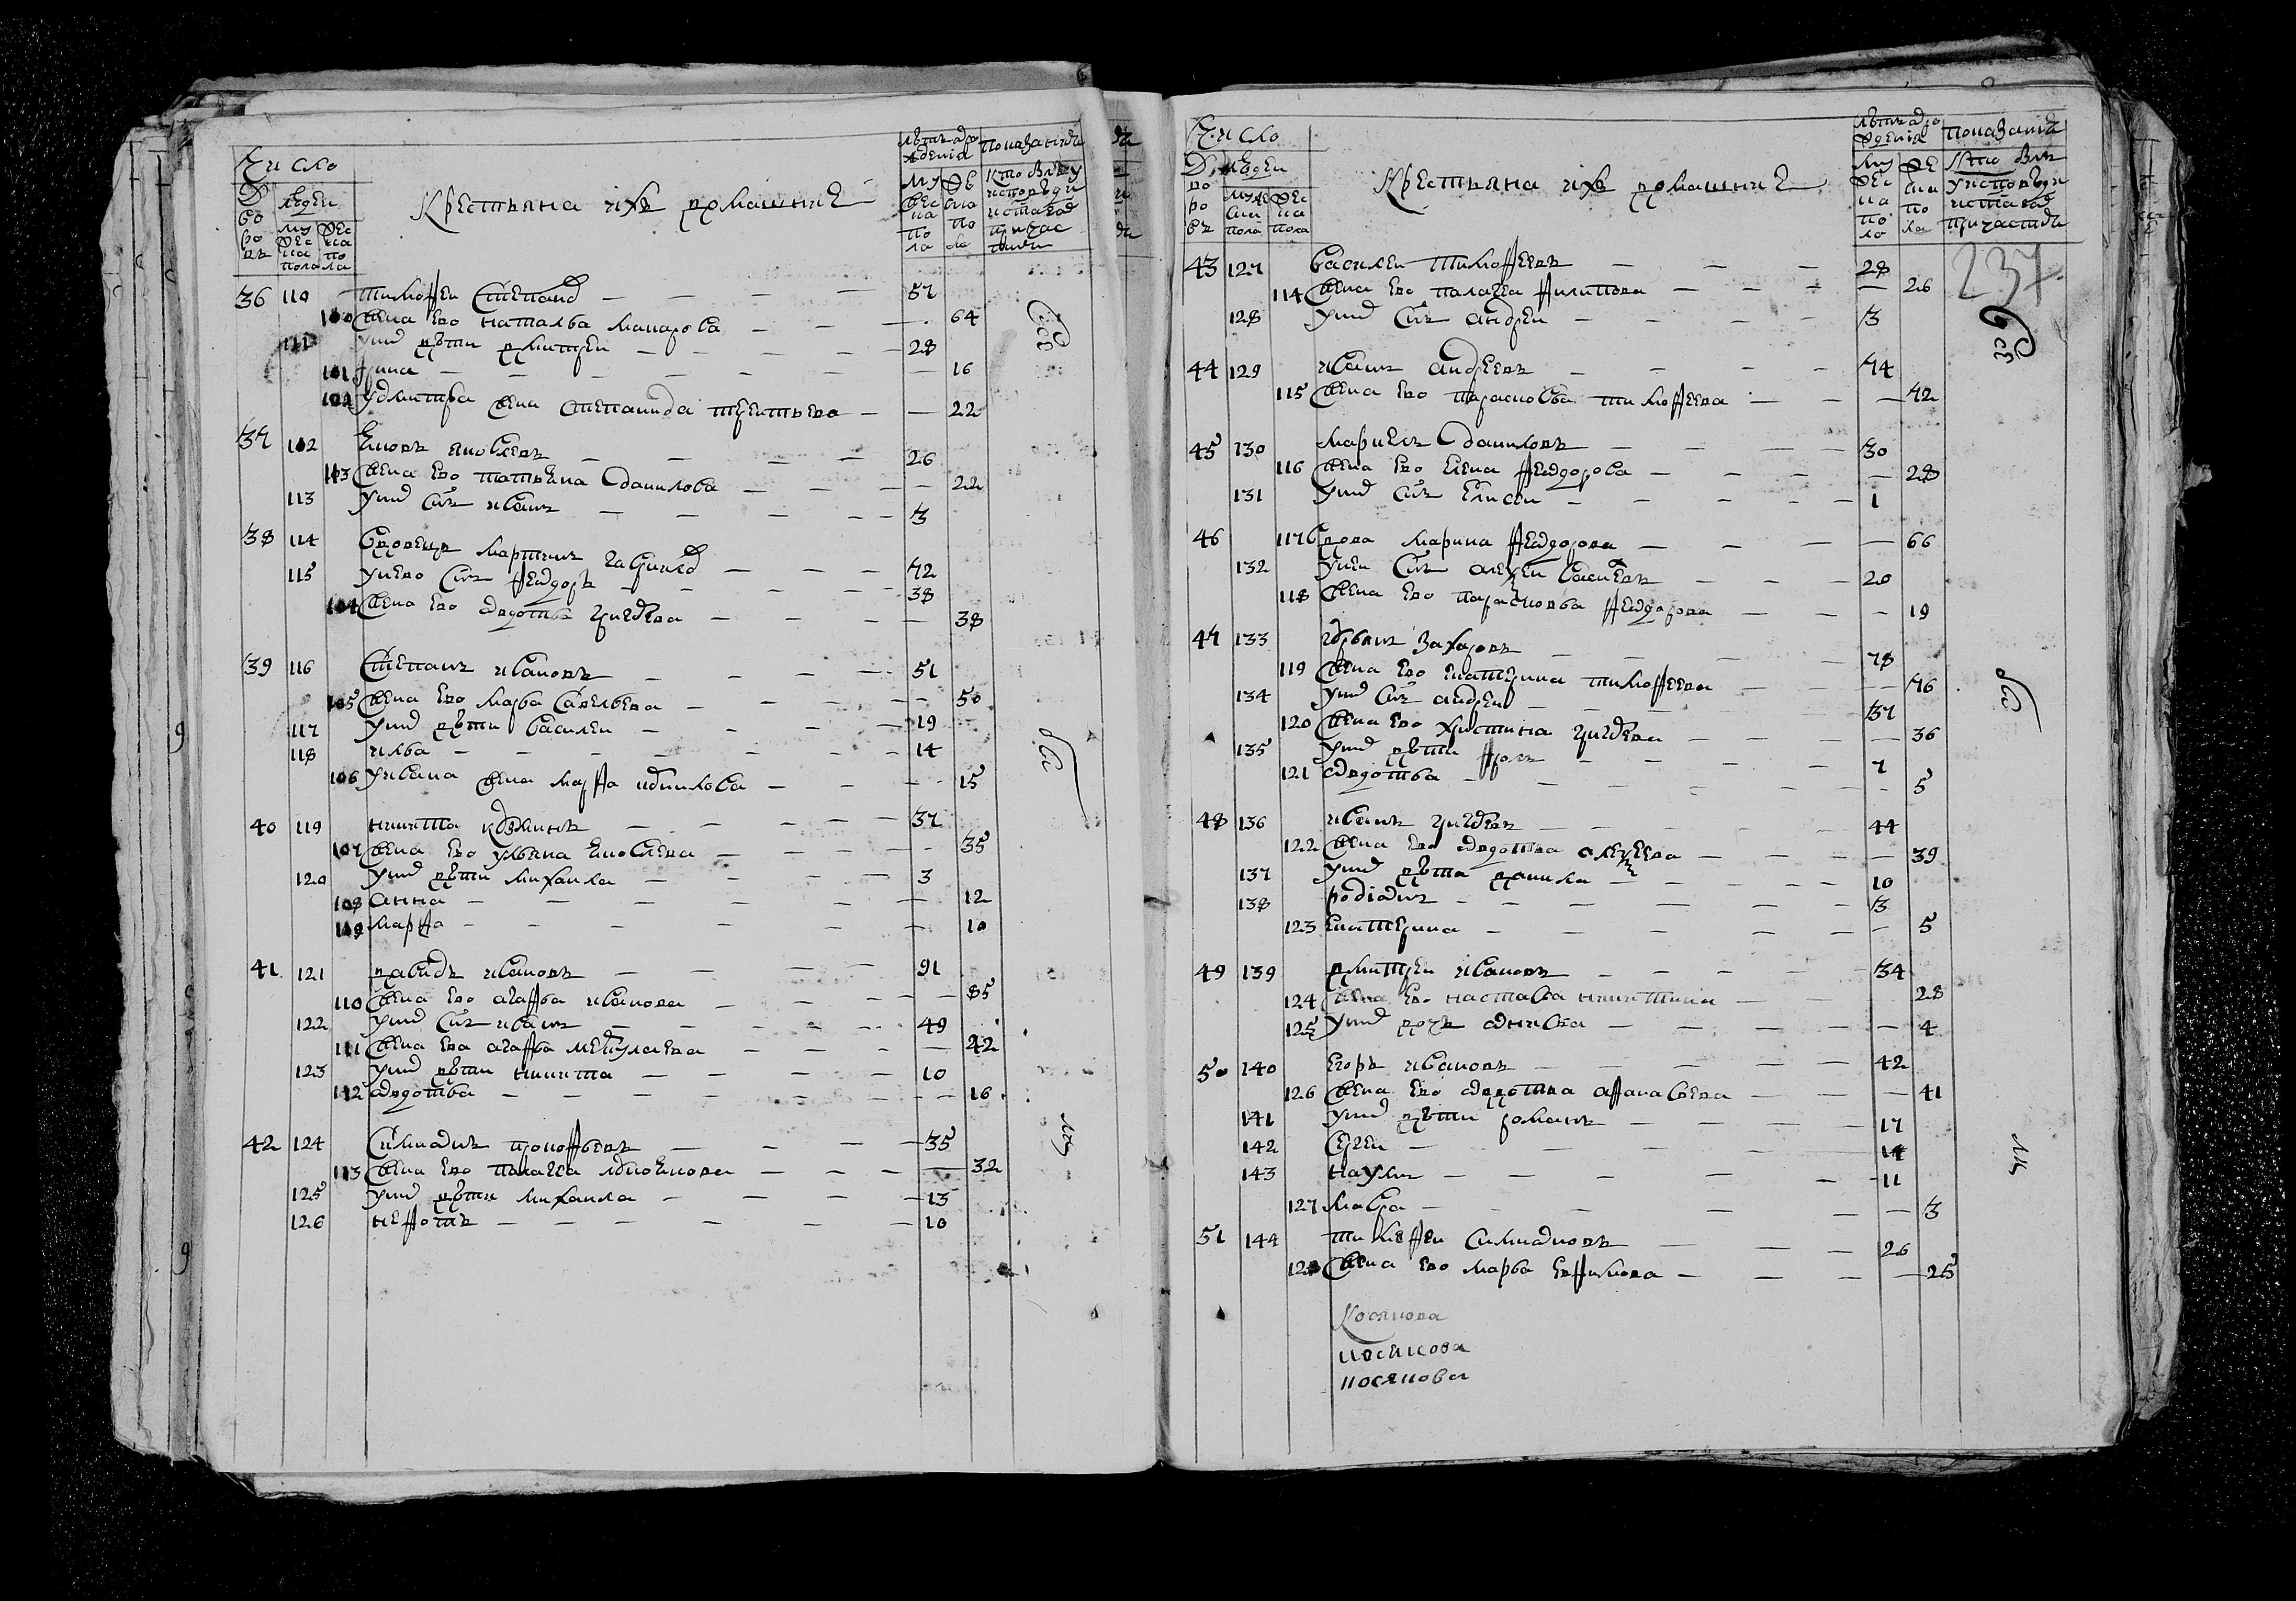 Число
Дворовъ Людей
мужеска пола женска пола
Крестьяна ихъ домашние
лѣтъ рождения
мужеска пола женска пола
показание кто былъ у исповеди и святаго причастия
36 110 Тимофеи Степанов — 57
100 Жена ево наталья макарова — 64
111 у них дѣти дмитреи — 28
101 Ирина — 16
102 у дмитрея жена степанида терентьева — 22
37 112 Яковъ яковлевъ — 26
103 жена ево татьяна данилова — 22
113 у них сынъ иванъ — 3
38 114 вдовецъ мартинъ гаврилов — 72
115 у нево сынъ федоръ — 38
104 жена ево авдотья григорева — 38
39 116 Степанъ ивановъ — 51
105 жена ево марья савельева — 50
117 у них дѣти василеи — 19
118 илья — 14
106 у ивана жена марфа данилова — 15
40 119 никита кузминъ — 37
107 жена ево ульяна яковлева — 35
120 у них дѣти михаила — 3
108 анна — 12
109 марфа — 10
41 121 давыдъ ивановъ — 91
110 жена ево агафья иванова — 85
122 у них сынъ иванъ — 49
111 жена ева агафья — 42
123 у них дѣти никита — 10
112 авдотья — 16
42 124 Симионъ прокофьевъ — 35
113 жена ево пелагея — 32
125 у них дѣти михаила — 13
126 нефотъ — 10
всѣ
Число
Дворовъ Людей
мужеска пола женска пола
Крестьяна ихъ домашние
лѣтъ рождения
мужеска пола женска пола
показание кто былъ у исповеди и святаго причастия
237
43 127 Василеи тимофеевъ — 28
114 жена ево палагея филипова — 26
128 у них сынъ андреи — 3
44 129 иванъ андреевъ — 74
115 жена ево парасковья тимофеева — 72
45 130 маркелъ даниловъ — 30
116 жена ево елена федорова — 28
131 у них сынъ елисеи — 1
46 117 вдова марина федорова — 66
132 у неи сынъ алексеи васильевъ — 20
118 жена ево парасковья федорова — 19
47 133 Захаровъ — 78
119 жена ево екатерина тимофеева — 76
134 у них сынъ андреи — 37
120 жена ево христина григорева — 36
135 у них дѣти фролъ — 7
121 авдотья — 5
48 136 иванъ григоревъ — 44
122 жена ево авдотья алексеева — 39
137 у них дѣти данила — 10
138 родионъ — 3
123 екатерина — 5
49 139 дмитреи ивановъ — 34
124 жена ево настасья никитина — 28
125 у них дочь — 4
50 140 егоръ ивановъ — 42
126 жена ево авдотья афанасьева — 41
141 у них дѣти романъ — 17
142 сергеи — 14
143 наумъ — 11
127 мавра — 3
51 144 тимофеи симионовъ — 26
128 жена ево марья ефимова — 25
всѣ
косякова
косякова
косякова